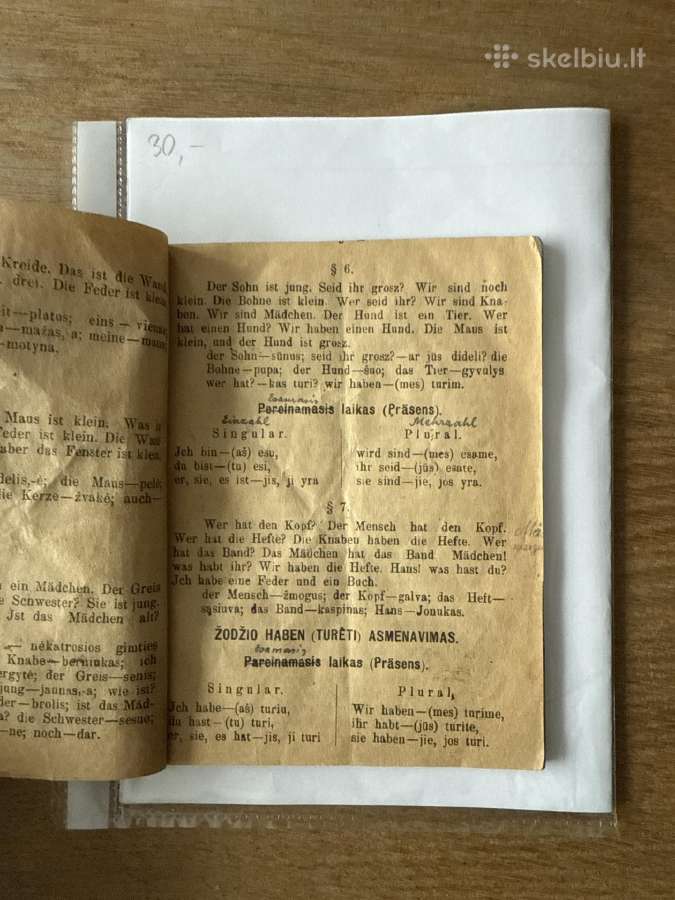 skelbiu.lt
30,-
Kreide. Das ist die Wand
drei. Die Feder ist klein
eit—platus; eins—vienas
a—mažas,-a; meine—mano
—motyna.
Maus ist klein. Was ist
Feder ist klein. Die Wand
aber das Fenster ist klein
delis,-ė; die Maus—pelė;
die Kerze—žvakė; auch—
n ein Mädchen. Der Greis
e Schwester? Sie ist jung.
Jst das Mädchen alt?
— nėkatrosios gimties
Knabe—berniukas; ich
ergytė; der Greis—senis;
jung—jaunas,-a; wie ist?
der—brolis; ist das Mäd-
a? die Schwester—sesuo;
—ne; noch—dar.
§ 6.
Der Sohn ist jung. Seid ihr grosz? Wir sind noch
klein. Die Bohne ist klein. Wer seid ihr? Wir sind Kna-
ben. Wir sind Mädchen. Der Hund ist ein Tier. Wer
hat einen Hund? Wir haben einen Hund. Die Maus ist
klein, und der Hund ist grosz.
der Sohn—sūnus; seid ihr grosz?—ar jūs dideli? die
Bohne—pupa; der Hund—šuo; das Tier—gyvulys
wer hat?—kas turi? wir haben—(mes) turim.
esamasis
Pereinamasis laikas (Präsens).
Einzahl Mehrzahl
Singular. Plural.
Jch bin—(aš) esu, wird sind—(mes) esame,
du bist—(tu) esi, ihr seid—(jūs) esate,
er, sie, es ist—jis, ji yra sie sind—jie, jos yra.
§ 7.
Wer hat den Kopf? Der Mensch hat den Kopf.
Wer hat die Hefte? Die Knabeu haben die Hefte. Wer
hat das Band? Das Mädchen hat das Band. Mädchen!
was habt ihr? Wir haben die Hefte. Hans! was hast du?
Jch habe eine Feder und ein Buch.
der Mensch—žmogus; der Kopf—galva; das Heft—
sąsiuva; das Band—kaspinas; Hans—Jonukas.
ŽODŽIO HABEN (TURĖTI) ASMENAVIMAS.
esamasis
Pareinamasis laikas (Präsens).
Singular. Plural,
Jch habe—(aš) turiu, Wir haben—(mes) turime,
du hast—(tu) turi, ihr habt—(jūs) turite,
er, sie, es hat—jis, ji turi sie haben—jie, jos turi.